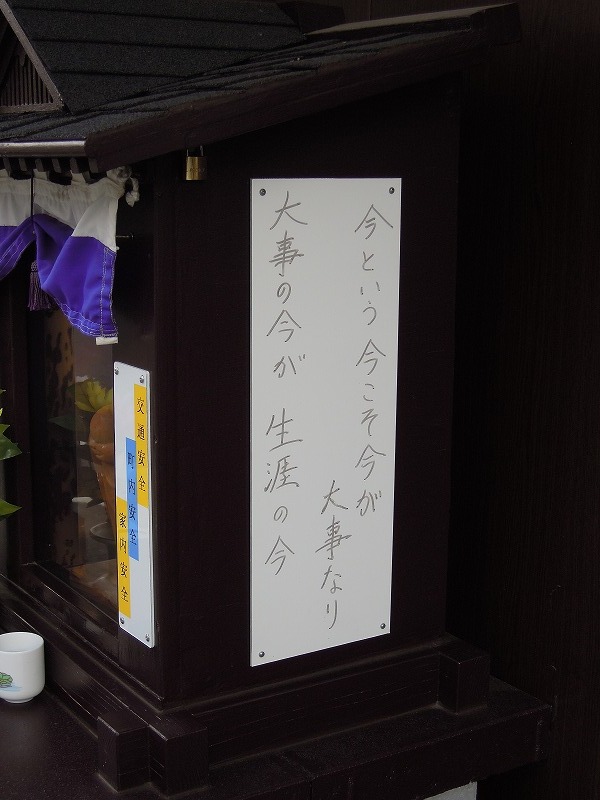 今という今こそ今が
大事なり
大事の今が 生涯の今
交通安全
町内安全
家内安全